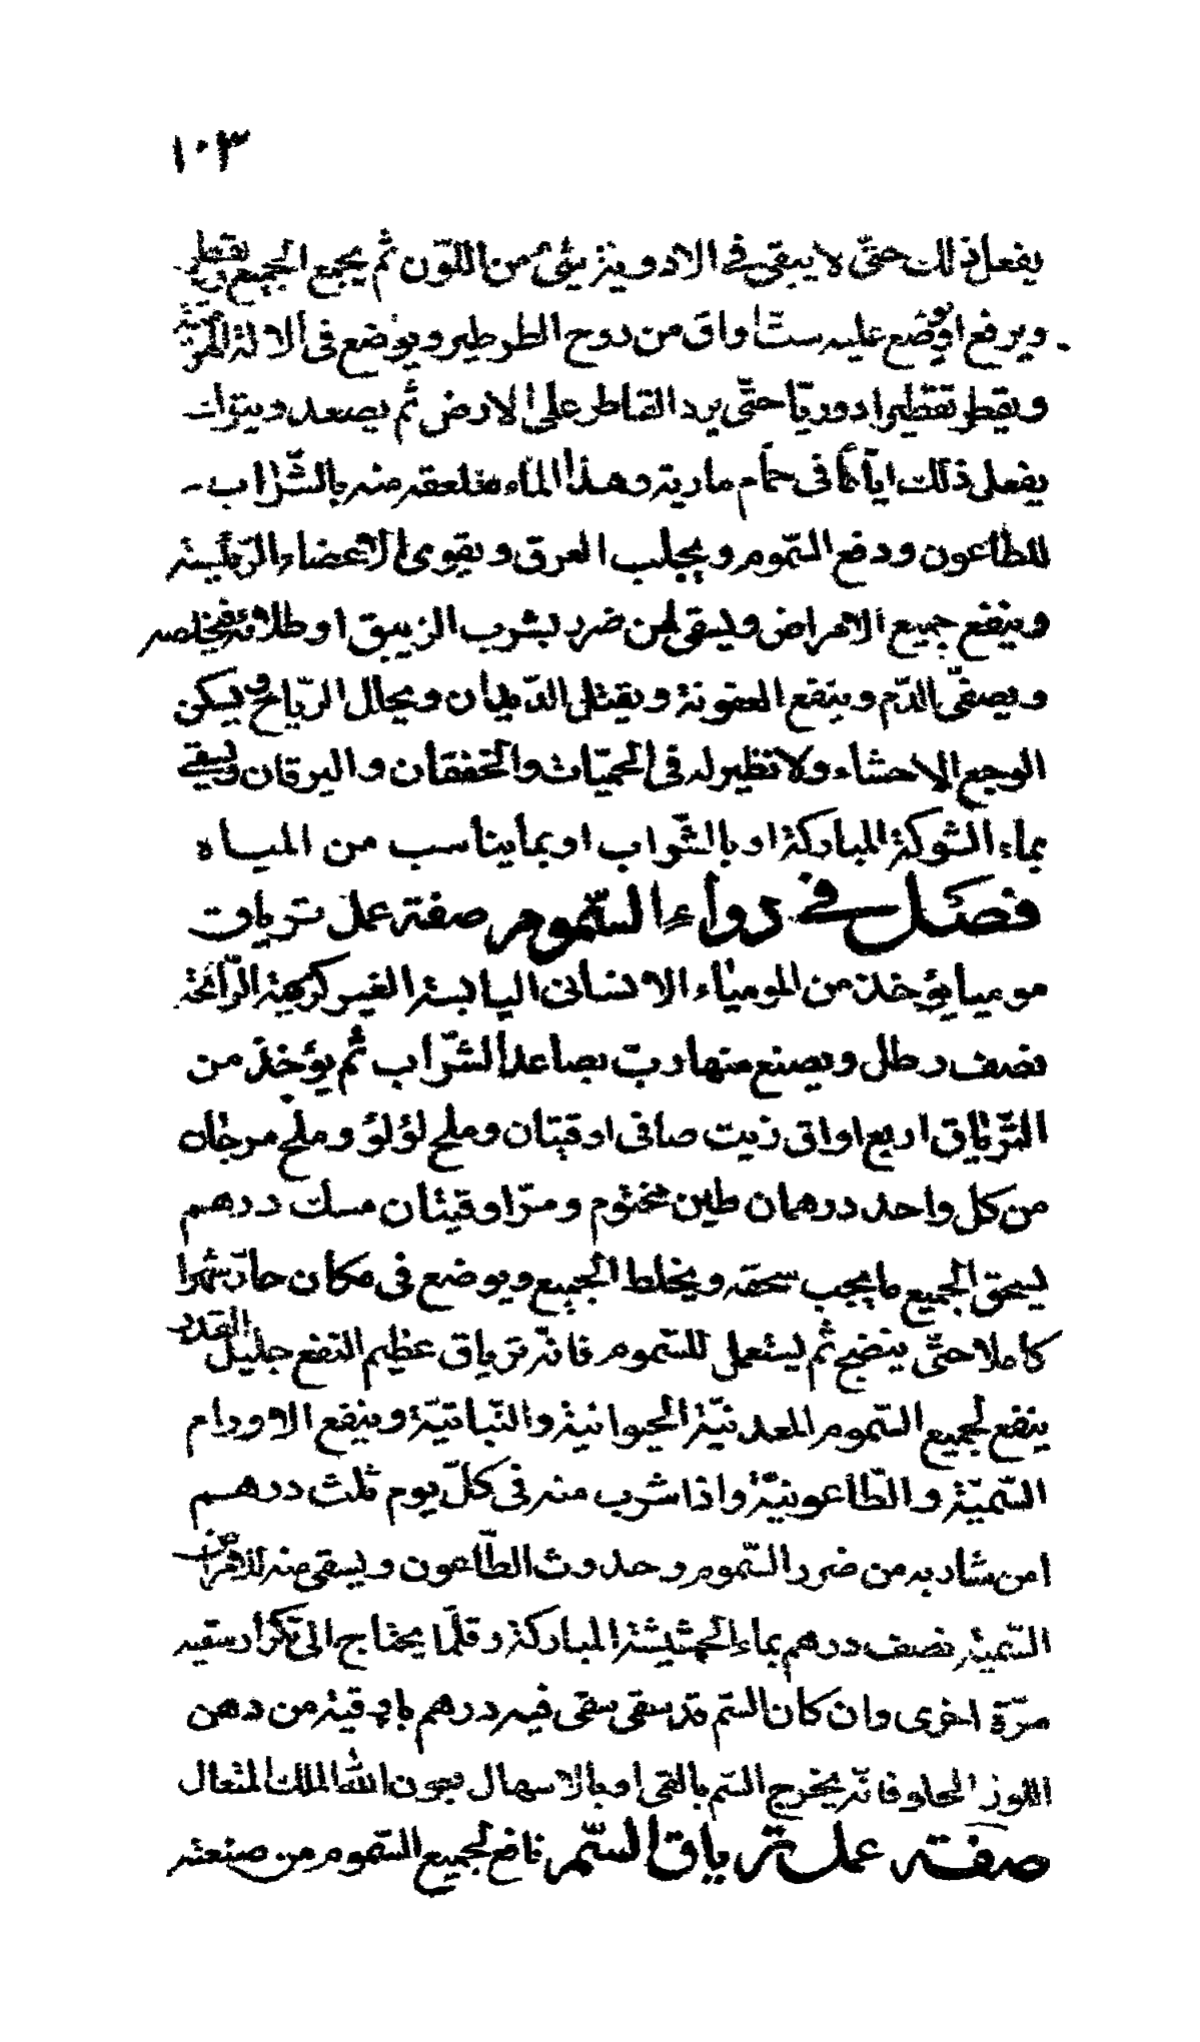 ١٠٣
يفعل ذلك حتّى لا يبقى فى الادوية شئ من اللّون ثم يجمع الجميع
ويرفع او يوضع عليه ستّ اواق من روح الطرطير ويوضع فى الالة
ويقطر تقطيرا دوريّا حتّى يرد القاطر على الارض ثم يصعد ويتراك
يفعل ذلك ايّاما فى حمّام مارية وهذا الماء منه بالشّراب
للطاعون ودفع السّموم ويجلب العرق ويقوى الاعضاء الرّئيسة
وينفع جميع الامراض ويسقى لمن ضرر بشرب الزيبق او طلائه فيخلصه
ويصفّى الدّم وينفع العفونة ويقتل الدّيدان ويحلل الرّياح ويسكن
الوجع الاحشاء ولا نظير له فى الحميّات والخفقان واليرقان ويسقى
بماء الشوكة المباركة او بالشّراب او بما يناسب من المياه
فصل فى دواء السّموم صفة عمل ترياق
موميا يؤخذ من المومياء الانسانى اليابسة الغير كريهة الرّائحة
نصف رطل ويصنع منها ربّ بصاعد الشّراب ثم يؤخذ من
التّرياق اربع اواق زيت صافى اوقيتان وملح لؤلؤ وملح مرجان
من كل واحد درهمان طين مختوم ومرّ اوقيتان مسك درهم
يسحق الجميع ما يجب سحقه ويخلط الجميع ويوضع فى مكان حارّ شهرا
كاملا حتّى ينضج ثم يستعمل للسّموم فانّه ترياق عظيم النفع جليل القدر
ينفع لجميع السّموم المعدنيّة الحيوانية والنّباتيّة وينفع الاورام
السّميّة والطّاعونيّة واذا شرب منه فى كلّ يوم ثلث درهم
امن شاربه من ضرر السّموم وحدوث الطّاعون ويسقى منه للامراض
السّمية نصف درهم بماء الحشيشة المباركة وقلّما يحتاج الى تكرار سقيه
مرّة اخرى وان كان السّم قد سقى سقى فيه درهم باوقية من دهن
اللوز الحلو فانّه يخرج السّم بالقى او بالاسهال بعون الله الملك المتعال
صفة عمل ترياق السّم نافع لجميع السّموم من صنعته